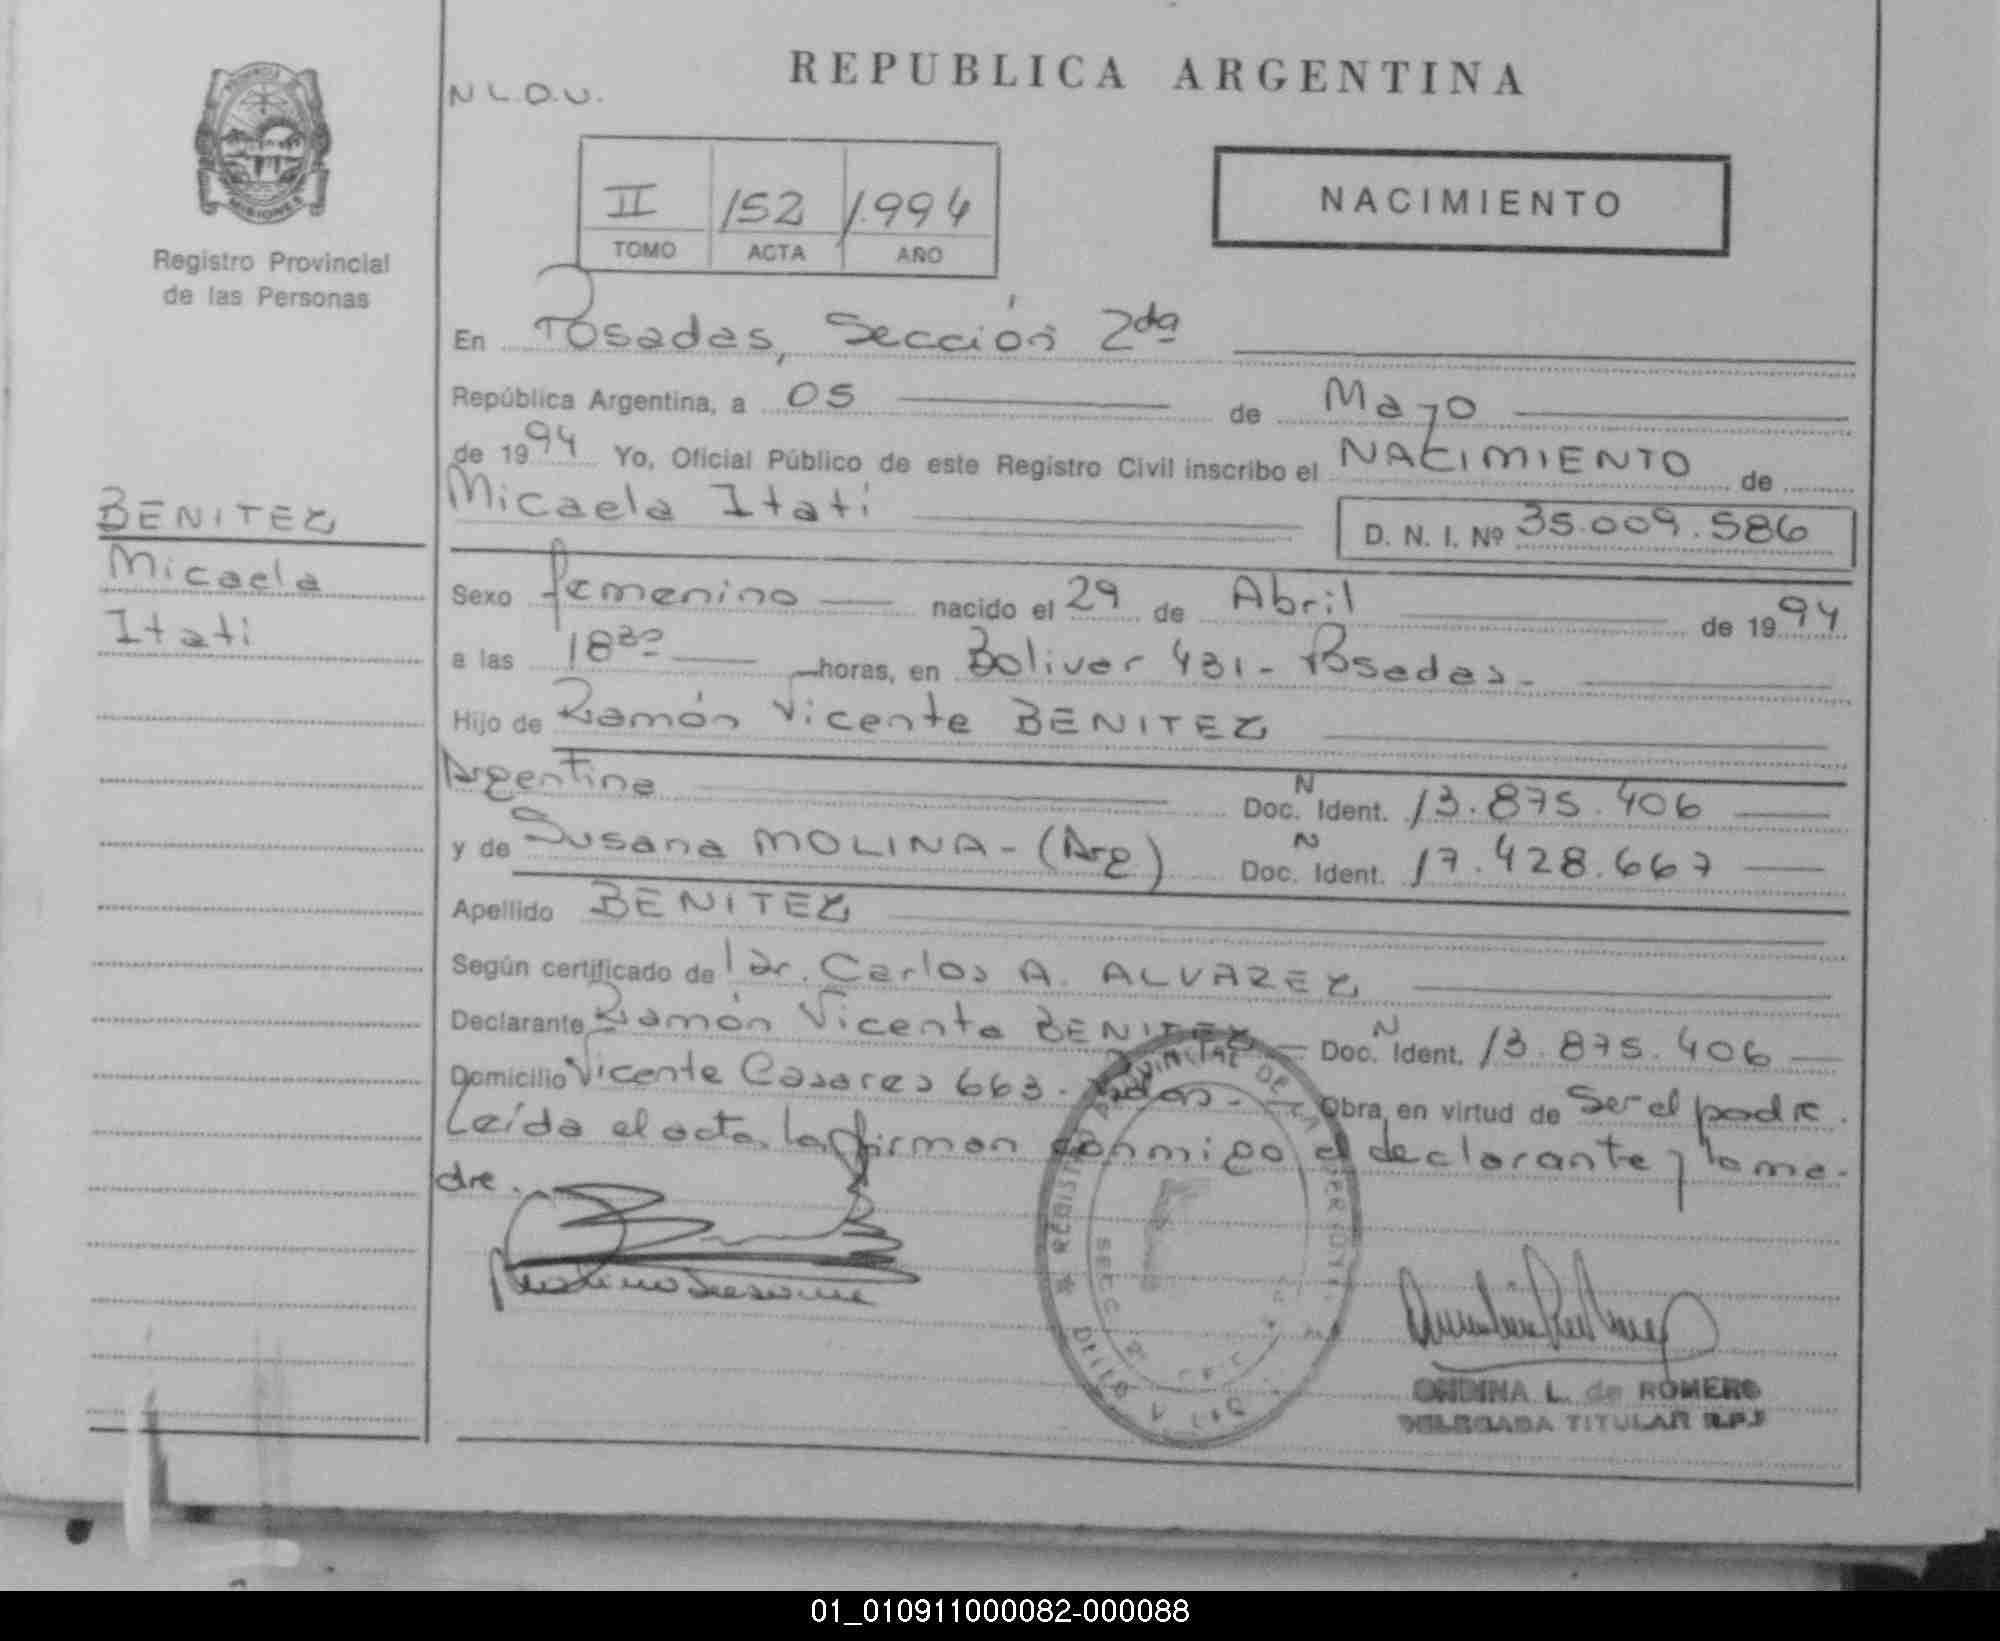 REPUBLICA ARGENTINA
N L.D.U.
MISIONES
Registro Provincial
de las Personas
II 152 1.994
TOMO ACTA AÑO
NACIMIENTO
En Posadas, Sección 2da
República Argentina, a 05 de Mayo
de 1994 Yo, Oficial Público de este Registro Civil inscribo el NACIMIENTO de
Micaela Itati D. N. I. Nº 35.009.586
BENITEZ
Micaela
Itati
Sexo femenino nacido el 29 de Abril de 1994
a las 18 30 horas, en Bolivar 431 - Posadas -
Hijo de Ramón Vicente BENITEZ
Argentina Doc. N Ident. 13.875.406
y de Susana MOLINA - (Arg) Doc. N Ident. 17.428.667
Apellido BENITEZ
Según certificado de Dr. Carlos A. ALVAREZ
Declarante Ramón Vicente BENITEZ Doc. N Ident. 13.875.406
Domicilio Vicente Casares 663 - Pdas - Obra en virtud de Ser el padre.
Leída el acta, la firman conmigo el declarante y la ma-
dre.
Molina Susana
REGISTRO PROVINCIAL DE LAS PERSONAS
ONDINA L. de ROMERO
DELEGADA TITULAR R.P.P
01_010911000082-000088